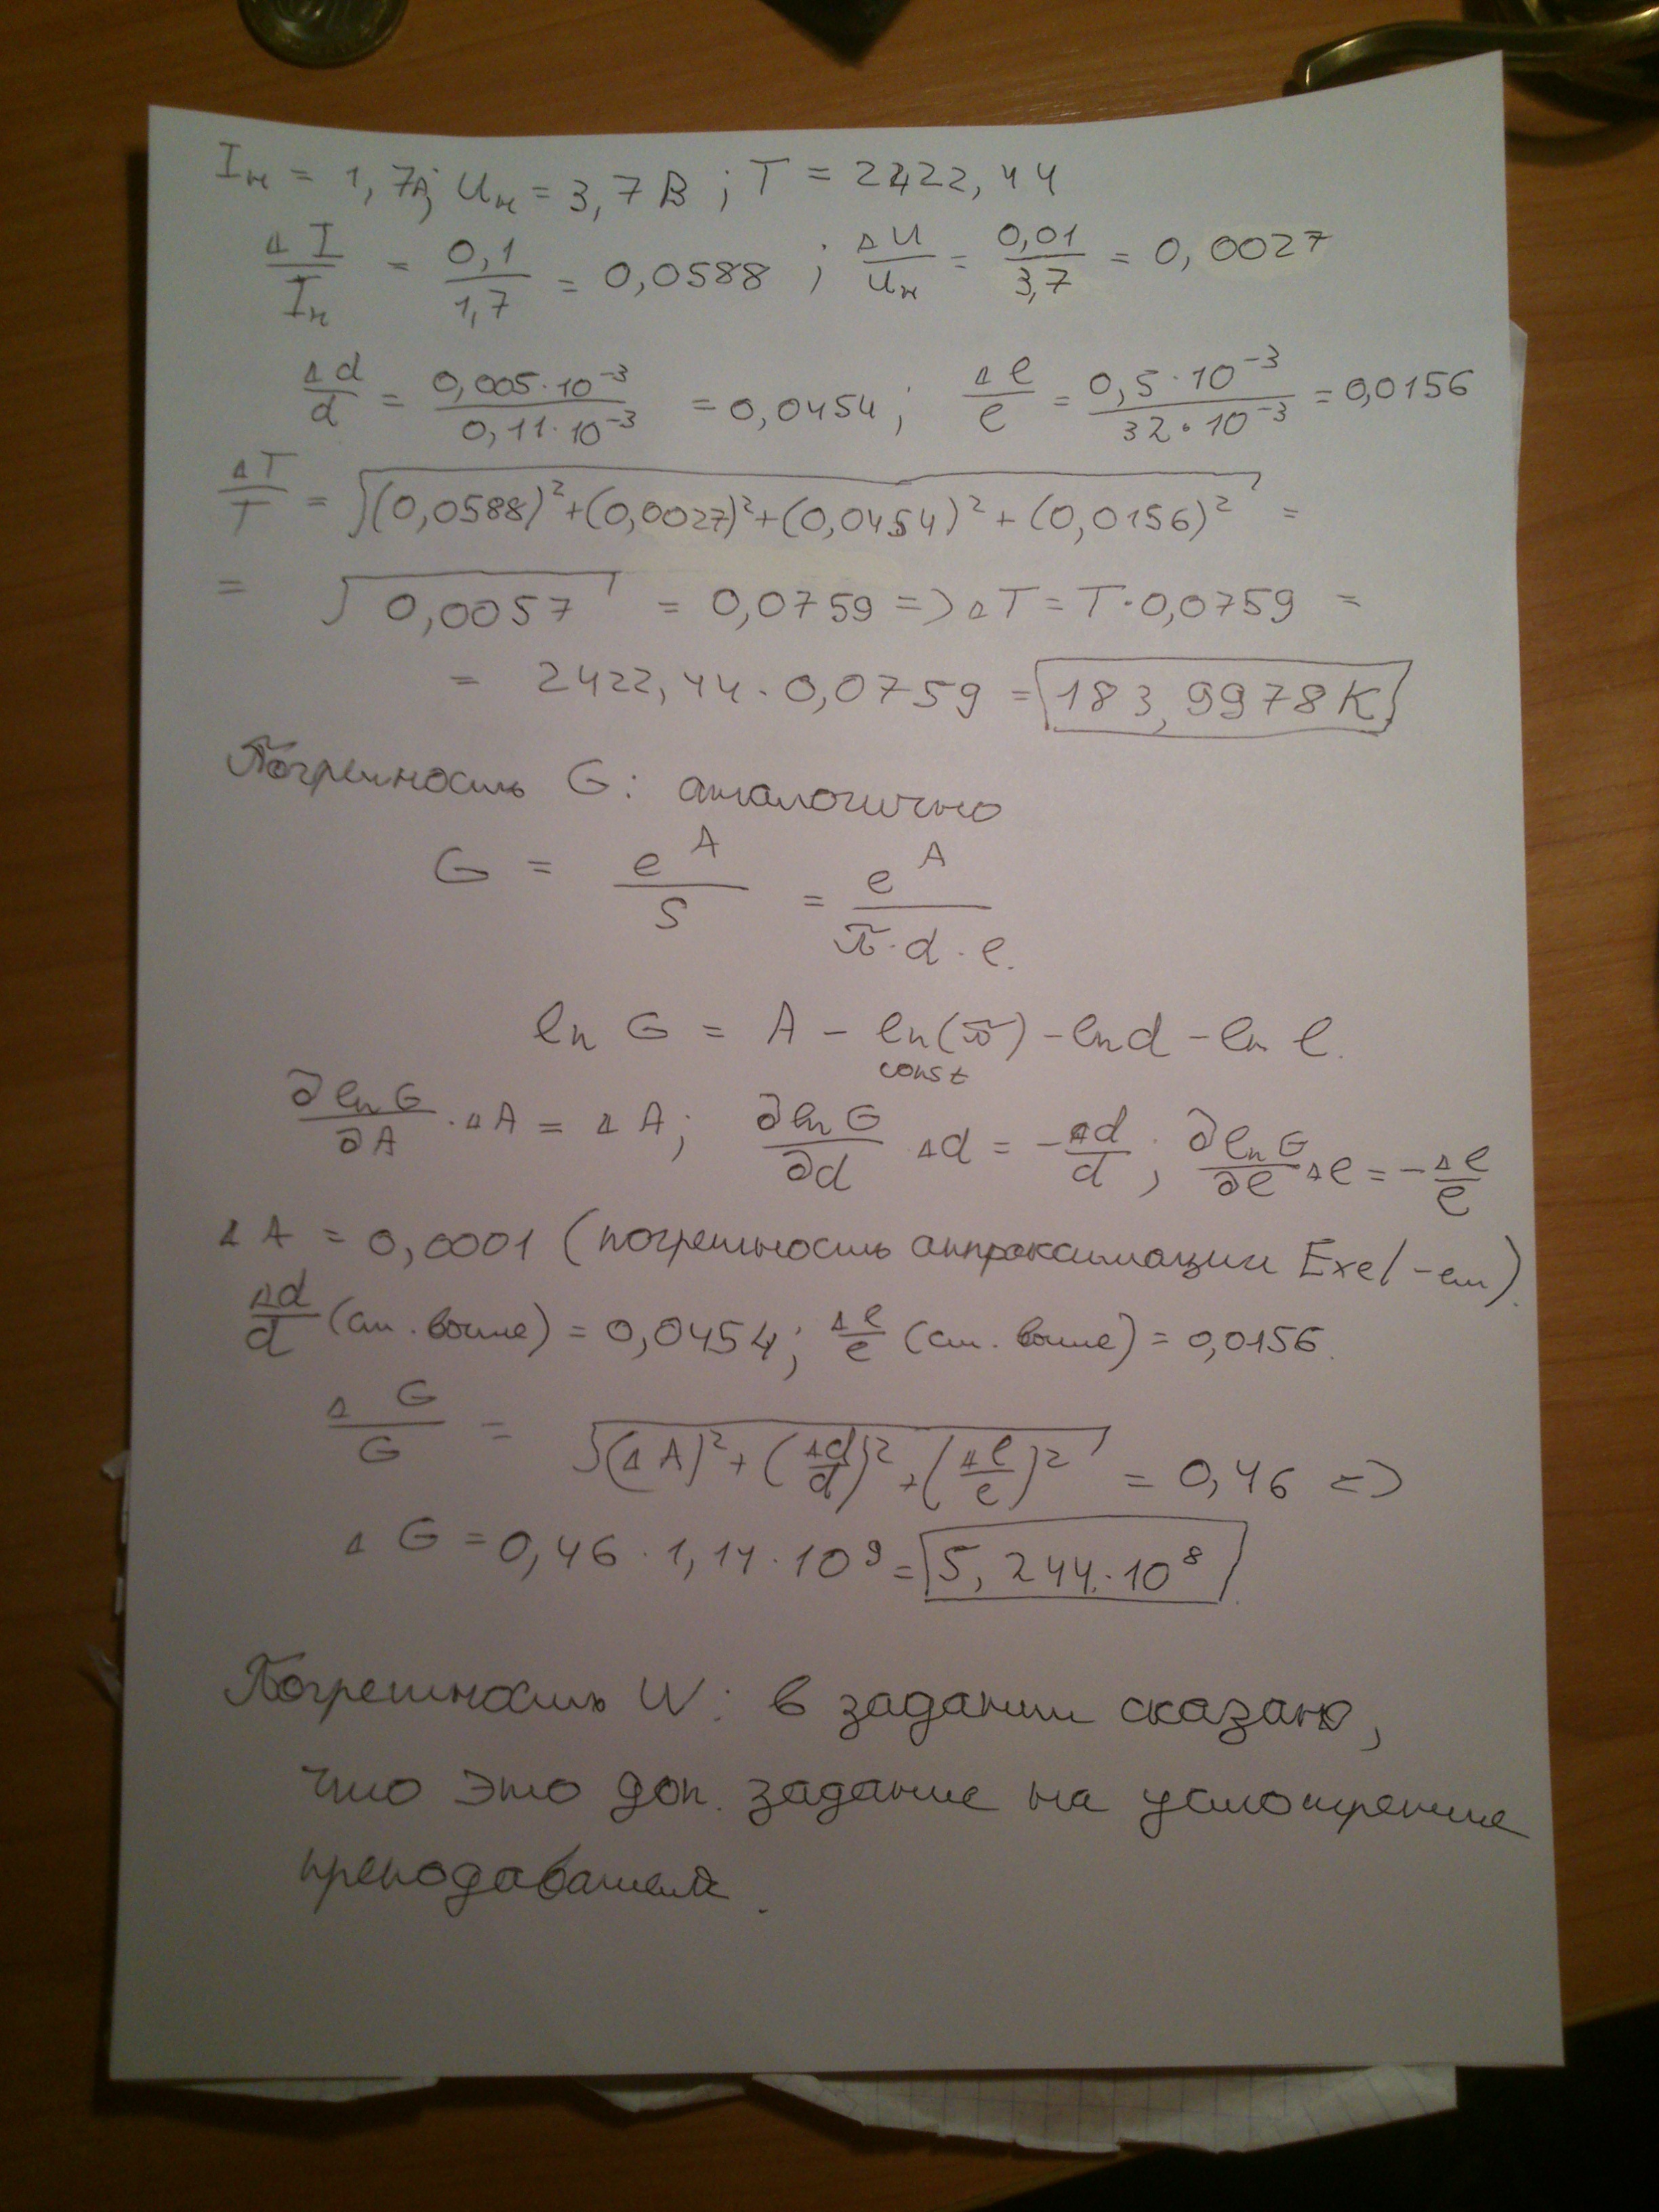 Iн = 1,7А; Uн = 3,7 В ; T = 2422,44
ΔI/Iн = 0,1/1,7 = 0,0588 ; ΔU/Uн = 0,01/3,7 = 0,0027
Δd/d = 0,005·10⁻³/0,11·10⁻³ = 0,0454 ; Δl/l = 0,5·10⁻³/32·10⁻³ = 0,0156
ΔT/T = √((0,0588)²+(0,0027)²+(0,0454)²+(0,0156)²) =
= √0,0057 = 0,0759 => ΔT = T·0,0759 =
= 2422,44·0,0759 = 183,9978К
Погрешность G: аналогично
G = e^A/S = e^A/π·d·l.
ln G = A - ln(π) - ln d - ln l.
const
∂lnG/∂A · ΔA = ΔA; ∂lnG/∂d Δd = -Δd/d ; ∂lnG/∂l Δl = -Δl/l
ΔA = 0,0001 (погрешность аппроксимации Exel-ем).
Δd/d (см. выше) = 0,0454; Δl/l (см. выше) = 0,0156.
ΔG/G = √((ΔA)²+(Δd/d)²+(Δl/l)²) = 0,46 =>
ΔG = 0,46·1,14·10⁹ = 5,244·10⁸
Погрешность W: в задании сказано,
что это доп. задание на усмотрение
преподавателя.